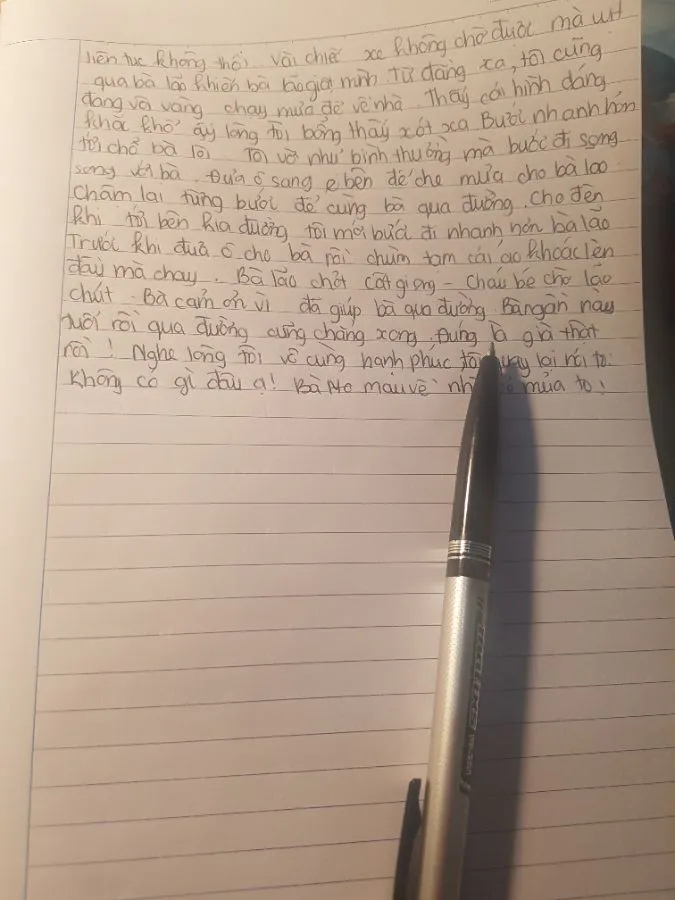 liên tục không thôi vài chiếc xe không chờ được mà ướt
qua bà lão khiến bà lão giật mình từ đằng xa, tôi cũng
đang vội vàng chạy mưa để về nhà Thấy cái hình dáng
khắc khổ ấy lòng tôi bỗng thấy xót xa Bước nhanh hơn
tới chỗ bà lão Tôi vờ như bình thường mà bước đi song
song với bà. Đưa ô sang bên để che mưa cho bà lao
Chậm lại từng bước để cùng bà qua đường. Cho đến
khi tới bên kia đường tôi mới bước đi nhanh hơn bà lão
Trước khi đưa ô cho bà rồi chùm tạm cái áo khoác lên
đầu mà chạy. Bà lão chợt cất giọng - Cháu bé chờ lão
chút. Bà cảm ơn vì đã giúp bà qua đường. Bà ngần này
tuổi rồi qua đường cũng chẳng xong. Đúng là già thật
rồi! Nghe lòng tôi vô cùng hạnh phúc tôi quay lại nói to:
Không có gì đâu ạ! Bà mau về mưa to!